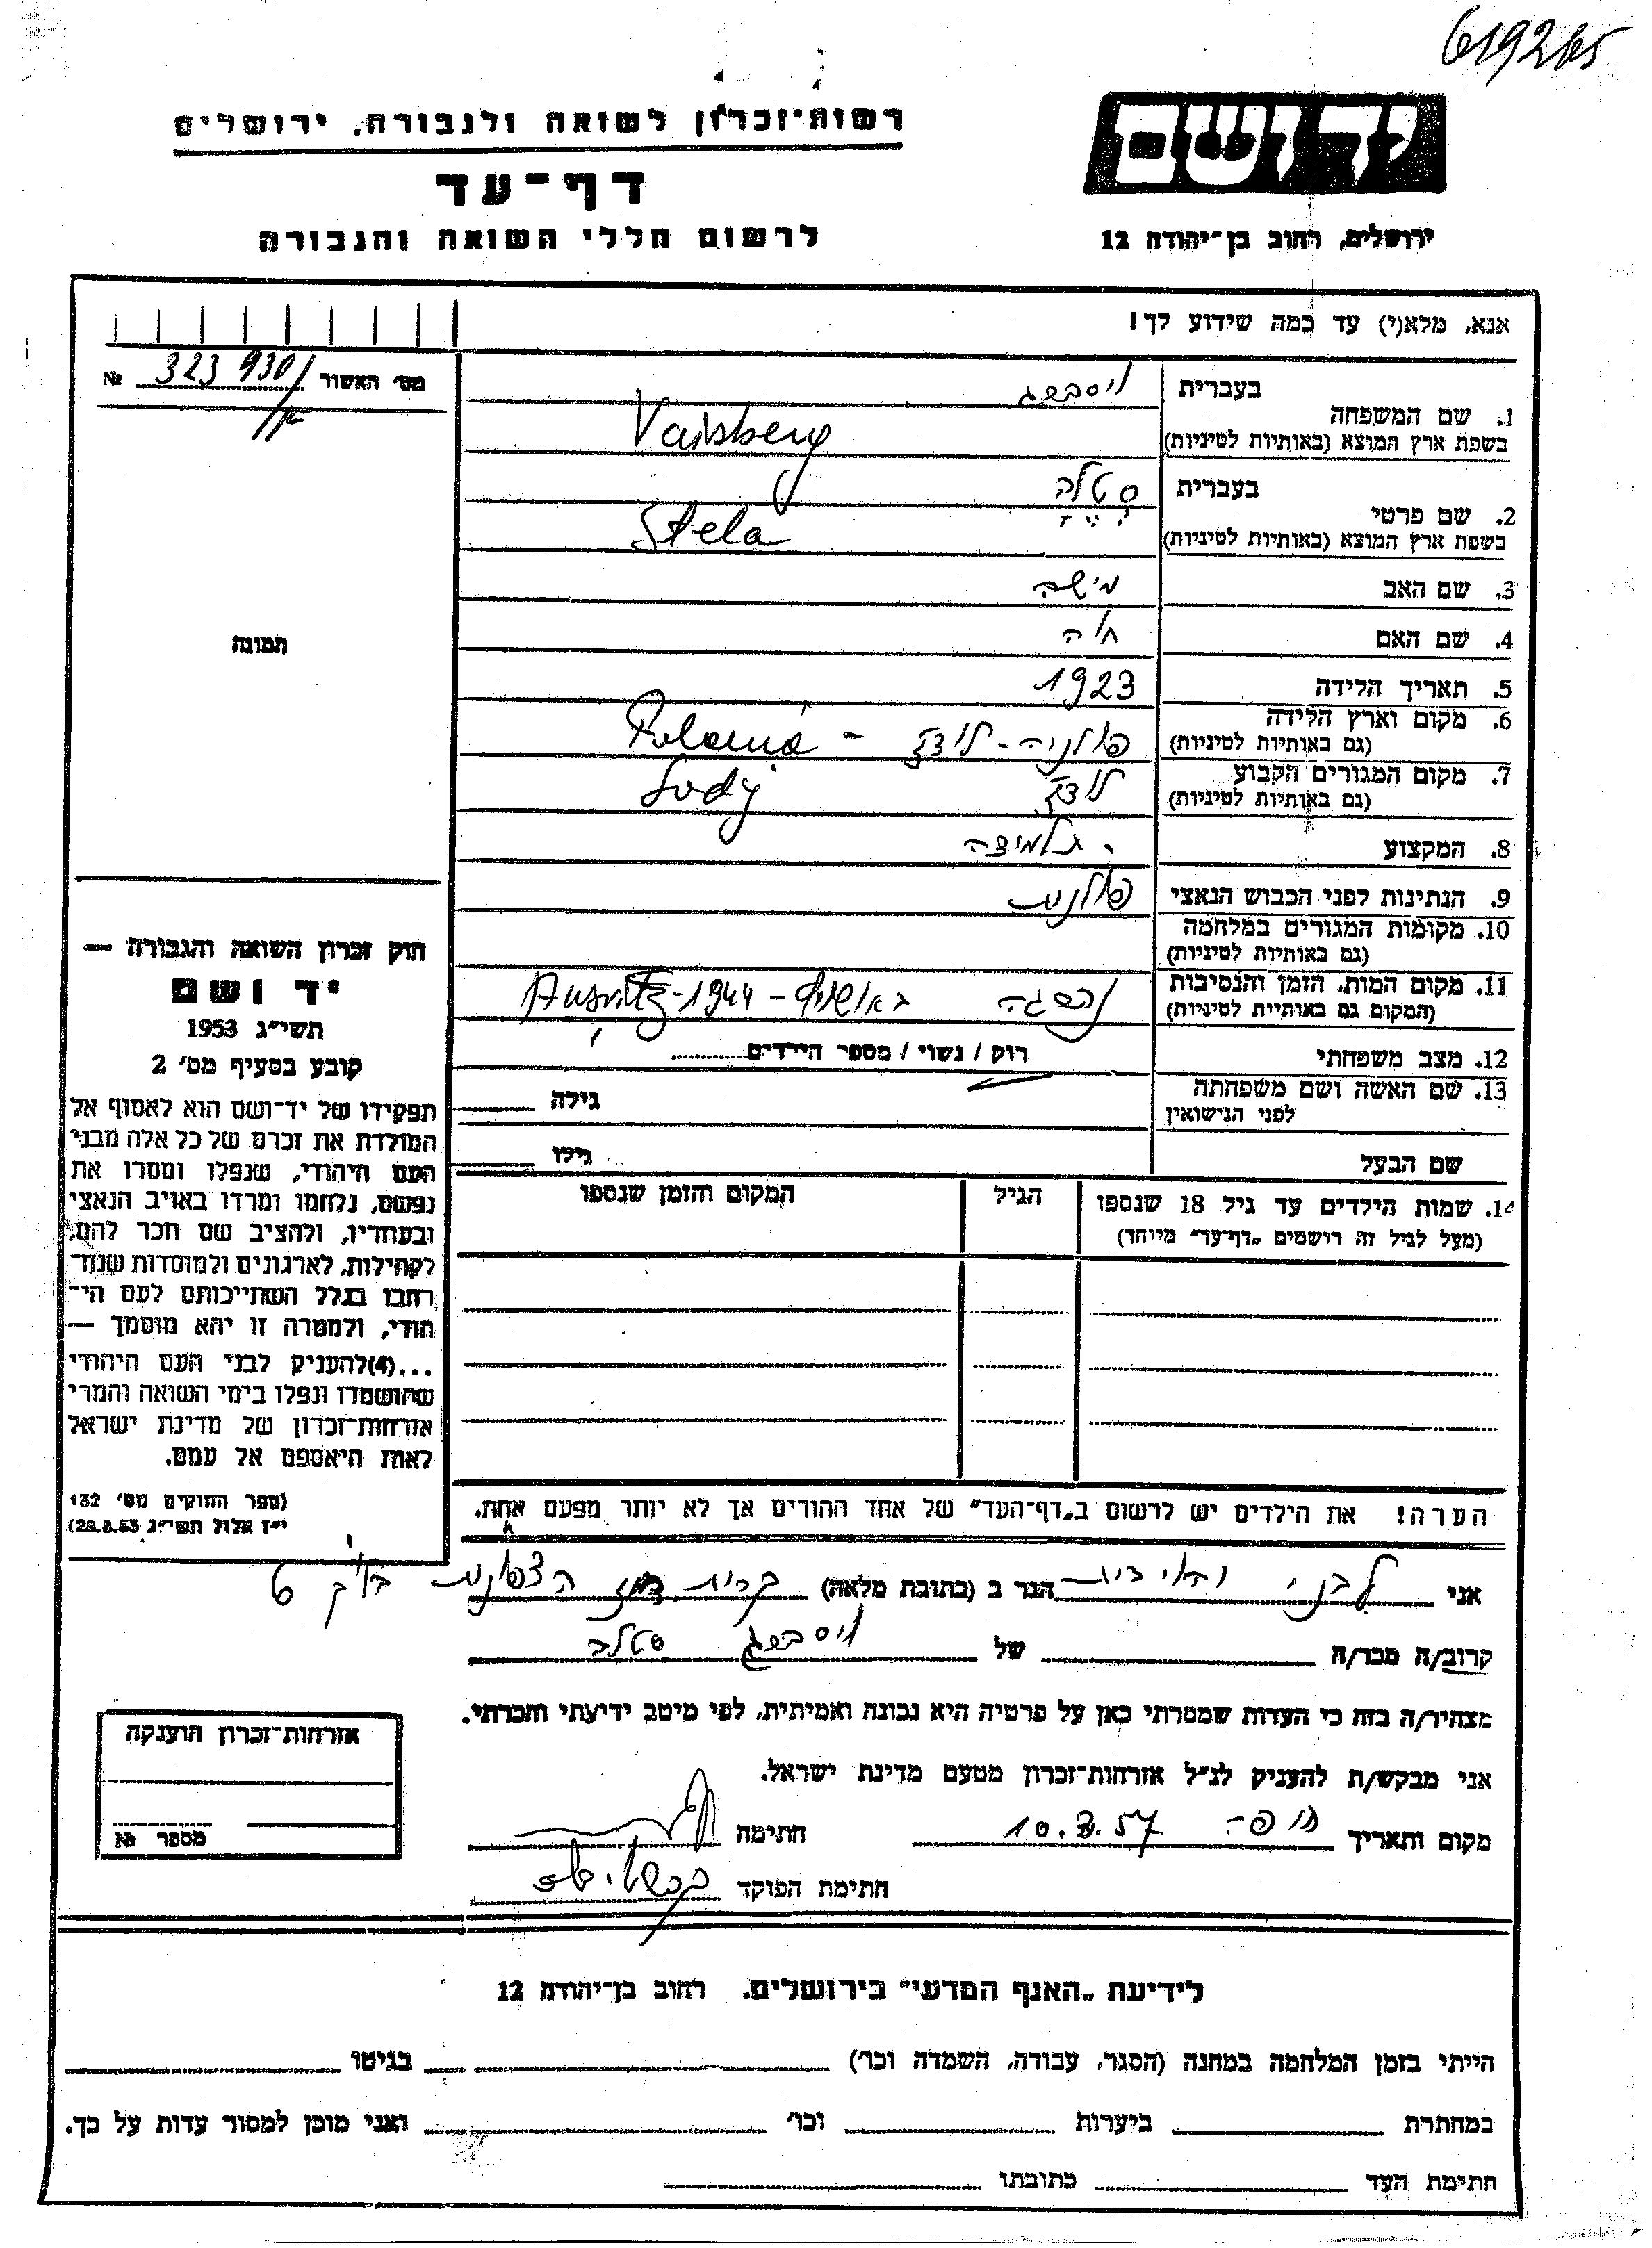 619265
רשות־זכרון לשואה ולגבורה, ירושלים
יד ושם
דף־עד
לרשום חללי השואה והגבורה
ירושלים, רחוב בן־יהודה 12
אנא, מלא(י) עד כמה שידוע לך!
מס׳ האשור 323930/ №
בעברית
1. שם המשפחה
בשפת ארץ המוצא (באותיות לטיניות) Vaisberg
בעברית סטלה
2. שם פרטי
בשפת ארץ המוצא (באותיות לטיניות) Stela
3. שם האב מישה
4. שם האם חיה
5. תאריך הלידה 1923
6. מקום וארץ הלידה
(גם באותיות לטיניות) פולניה - לודז - Polania
7. מקום המגורים הקבוע
(גם באותיות לטיניות) לודז Lodz
8. המקצוע תלמידה
9. הנתינות לפני הכבוש הנאצי פולנית
10. מקומות המגורים במלחמה
(גם באותיות לטיניות)
11. מקום המות, הזמן והנסיבות
(המקום גם באותיית לטיניות) באושויץ - 1944 - Ausvitz
12. מצב משפחתי רוק / נשוי / מספר הילדים
13. שם האשה ושם משפחתה
לפני הנישואין
גילה
שם הבעל
גילו
14. שמות הילדים עד גיל 18 שנספו
(מעל לגיל זה רישמים „דף־עד” מייחד)
הגיל
המקום והזמן שנספו
תמונה
חוק זכרון השואה והגבורה —
יד ושם
תשי״ג 1953
קובע בסעיף מס׳ 2
תפקידו של יד־ושם הוא לאסוף אל
המולדת את זכרם של כל אלה מבני
העם היהודי, שנפלו ומסרו את
נפשם, נלחמו ומרדו באויב הנאצי
ובעוזריו, ולהציב שם וזכר להם,
לקהילות, לארגונים ולמוסדות שנח־
רחבו בגלל השתייכותם לעם הי־
הודי, ולמטרה זו יהא מוסמך —
...(4) להעניק לבני העם היהודי
שהושמדו ונפלו בימי השואה והמרי
אזרחות־זכרון של מדינת ישראל
לאות היאספם אל עמם.
(ספר החוקים מס׳ 132
י״ז אלול תשי״ג 28.8.53)
הערה! את הילדים יש לרשום ב„דף־העד” של אחד ההורים אך לא יותר מפעם אחת.
אני לבני הגר ב (כתובת מלאה) קרית הצפונית
קרוב/ה מכר/ה של ויסברג סטלה
מצהיר/ה בזה כי העדות שמסרתי כאן על פרטיה היא נכונה ואמיתית, לפי מיטב ידיעתי והכרתי.
אני מבקש/ת להעניק לנ״ל אזרחות־זכרון מטעם מדינת ישראל.
מקום ותאריך חיפה 10.3.57 חתימה
חתימת הפוקד
אזרחות־זכרון הוענקה
מספר №
לידיעת „האגף המדעי” בירושלים. רחוב בן־יהודה 12
הייתי בזמן המלחמה במחנה (הסגר, עבודה, השמדה וכו׳) בגיטו
במחתרת ביערות וכו׳ ואני מוכן למסור עדות על כך.
חתימת העד כתובתו